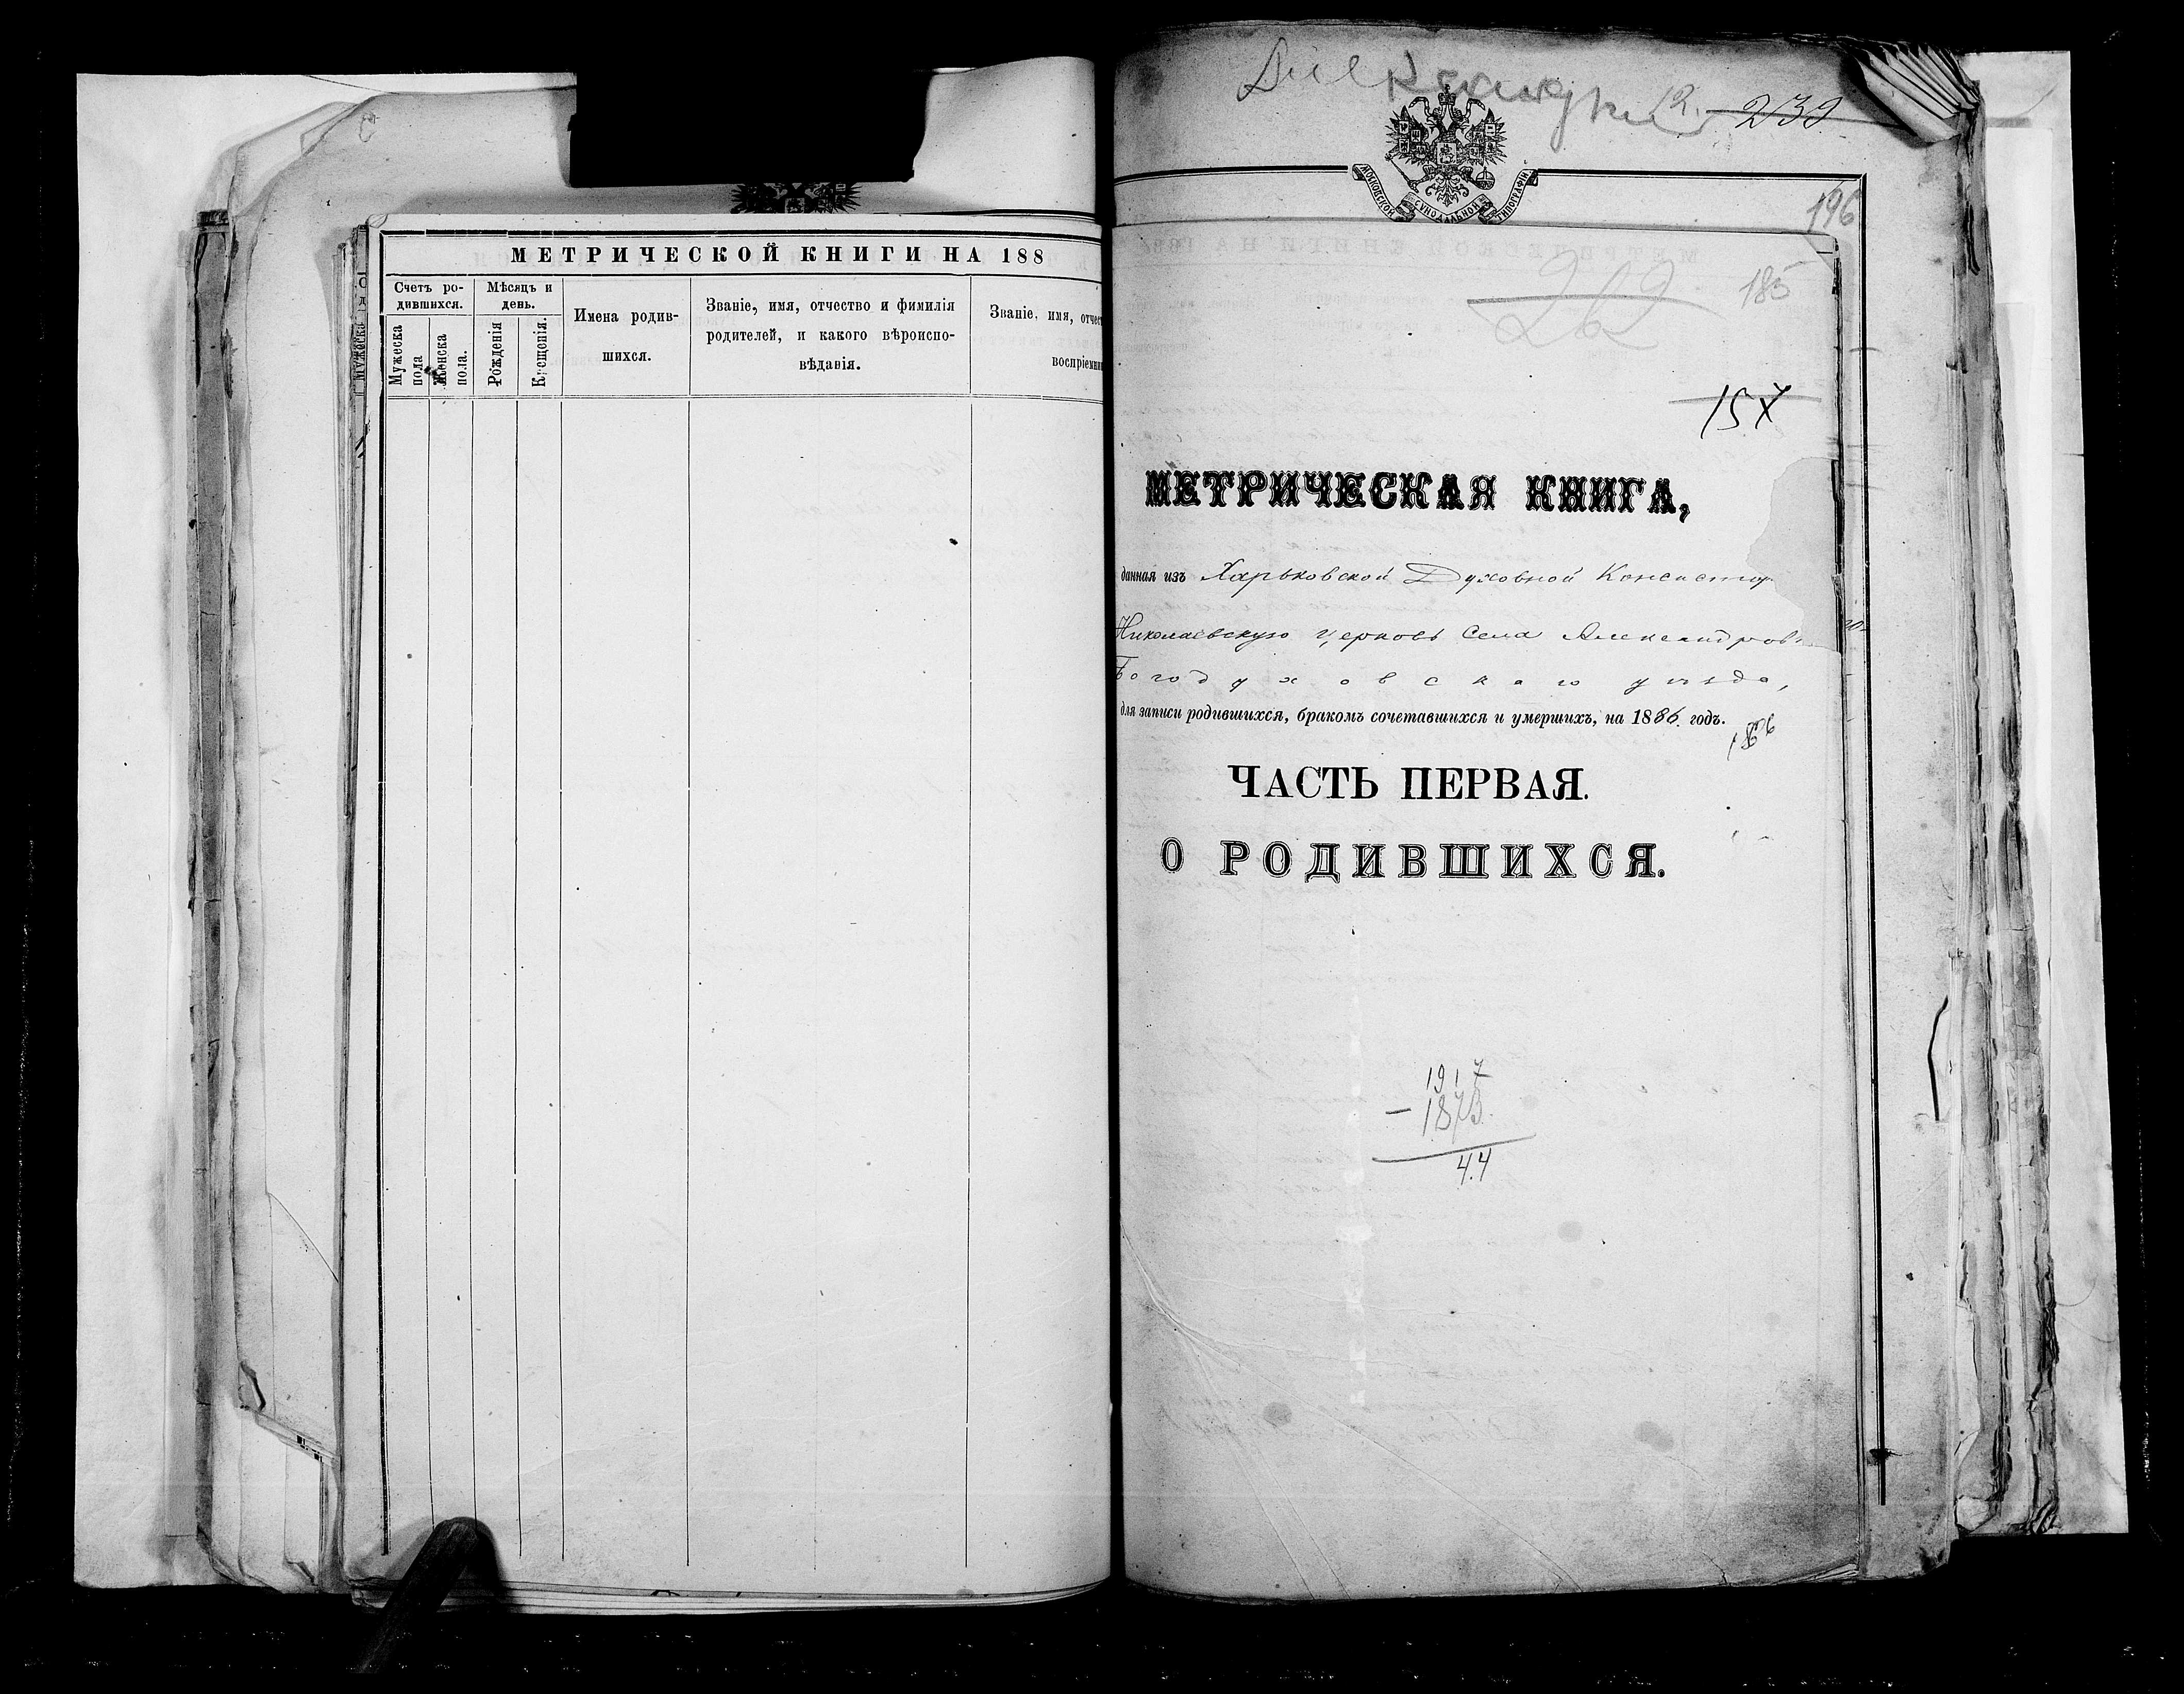 МЕТРИЧЕСКОЙ КНИГИ НА 188
Счетъ ро-
дившихся.
Мужеска
пола
Женска
пола.
Мѣсяцъ и
день.
Рожденія
Крещенія.
Имена родив-
шихся.
Званіе, имя, отчество и фимилія
родителей, и какого вѣроиспо-
вѣданія.
Званіе, имя, отчест
воспріемни
239
МОСКОВСКОЙ СУНОДАЛЬНОЙ ТИПОГРАФІИ
196
262
185
15
МЕТРИЧЕСКАЯ КНИГА,
данная изъ Харьковской Духовной Консистор
Николаевскую церковь села Александров
Богодуховскаго уѣзда,
для записи родившихся, бракомъ сочетавшихся и умершихъ, на 1886 годъ.
ЧАСТЬ ПЕРВАЯ.
О РОДИВШИХСЯ.
1917
– 1873
44